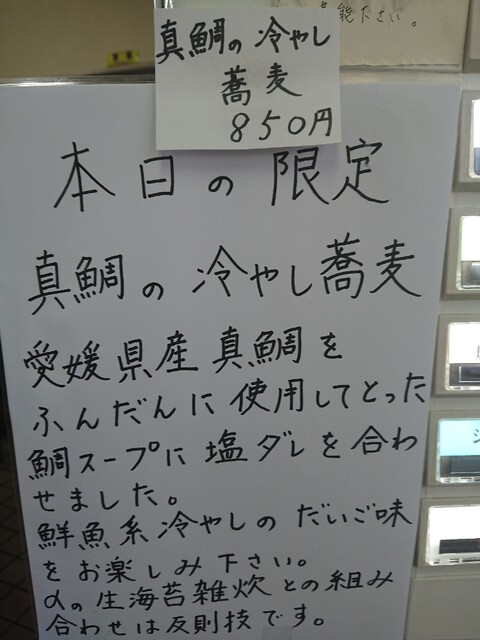 能下さい。
真鯛の冷やし
蕎麦
850円
本日の限定
真鯛の冷やし蕎麦
愛媛県産真鯛を
ふんだんに使用してとった
鯛スープに塩ダレを合わ
せました。
鮮魚系冷やしのだいご味
をお楽しみ下さい。
αの生海苔雑炊との組み
合わせは反則技です。